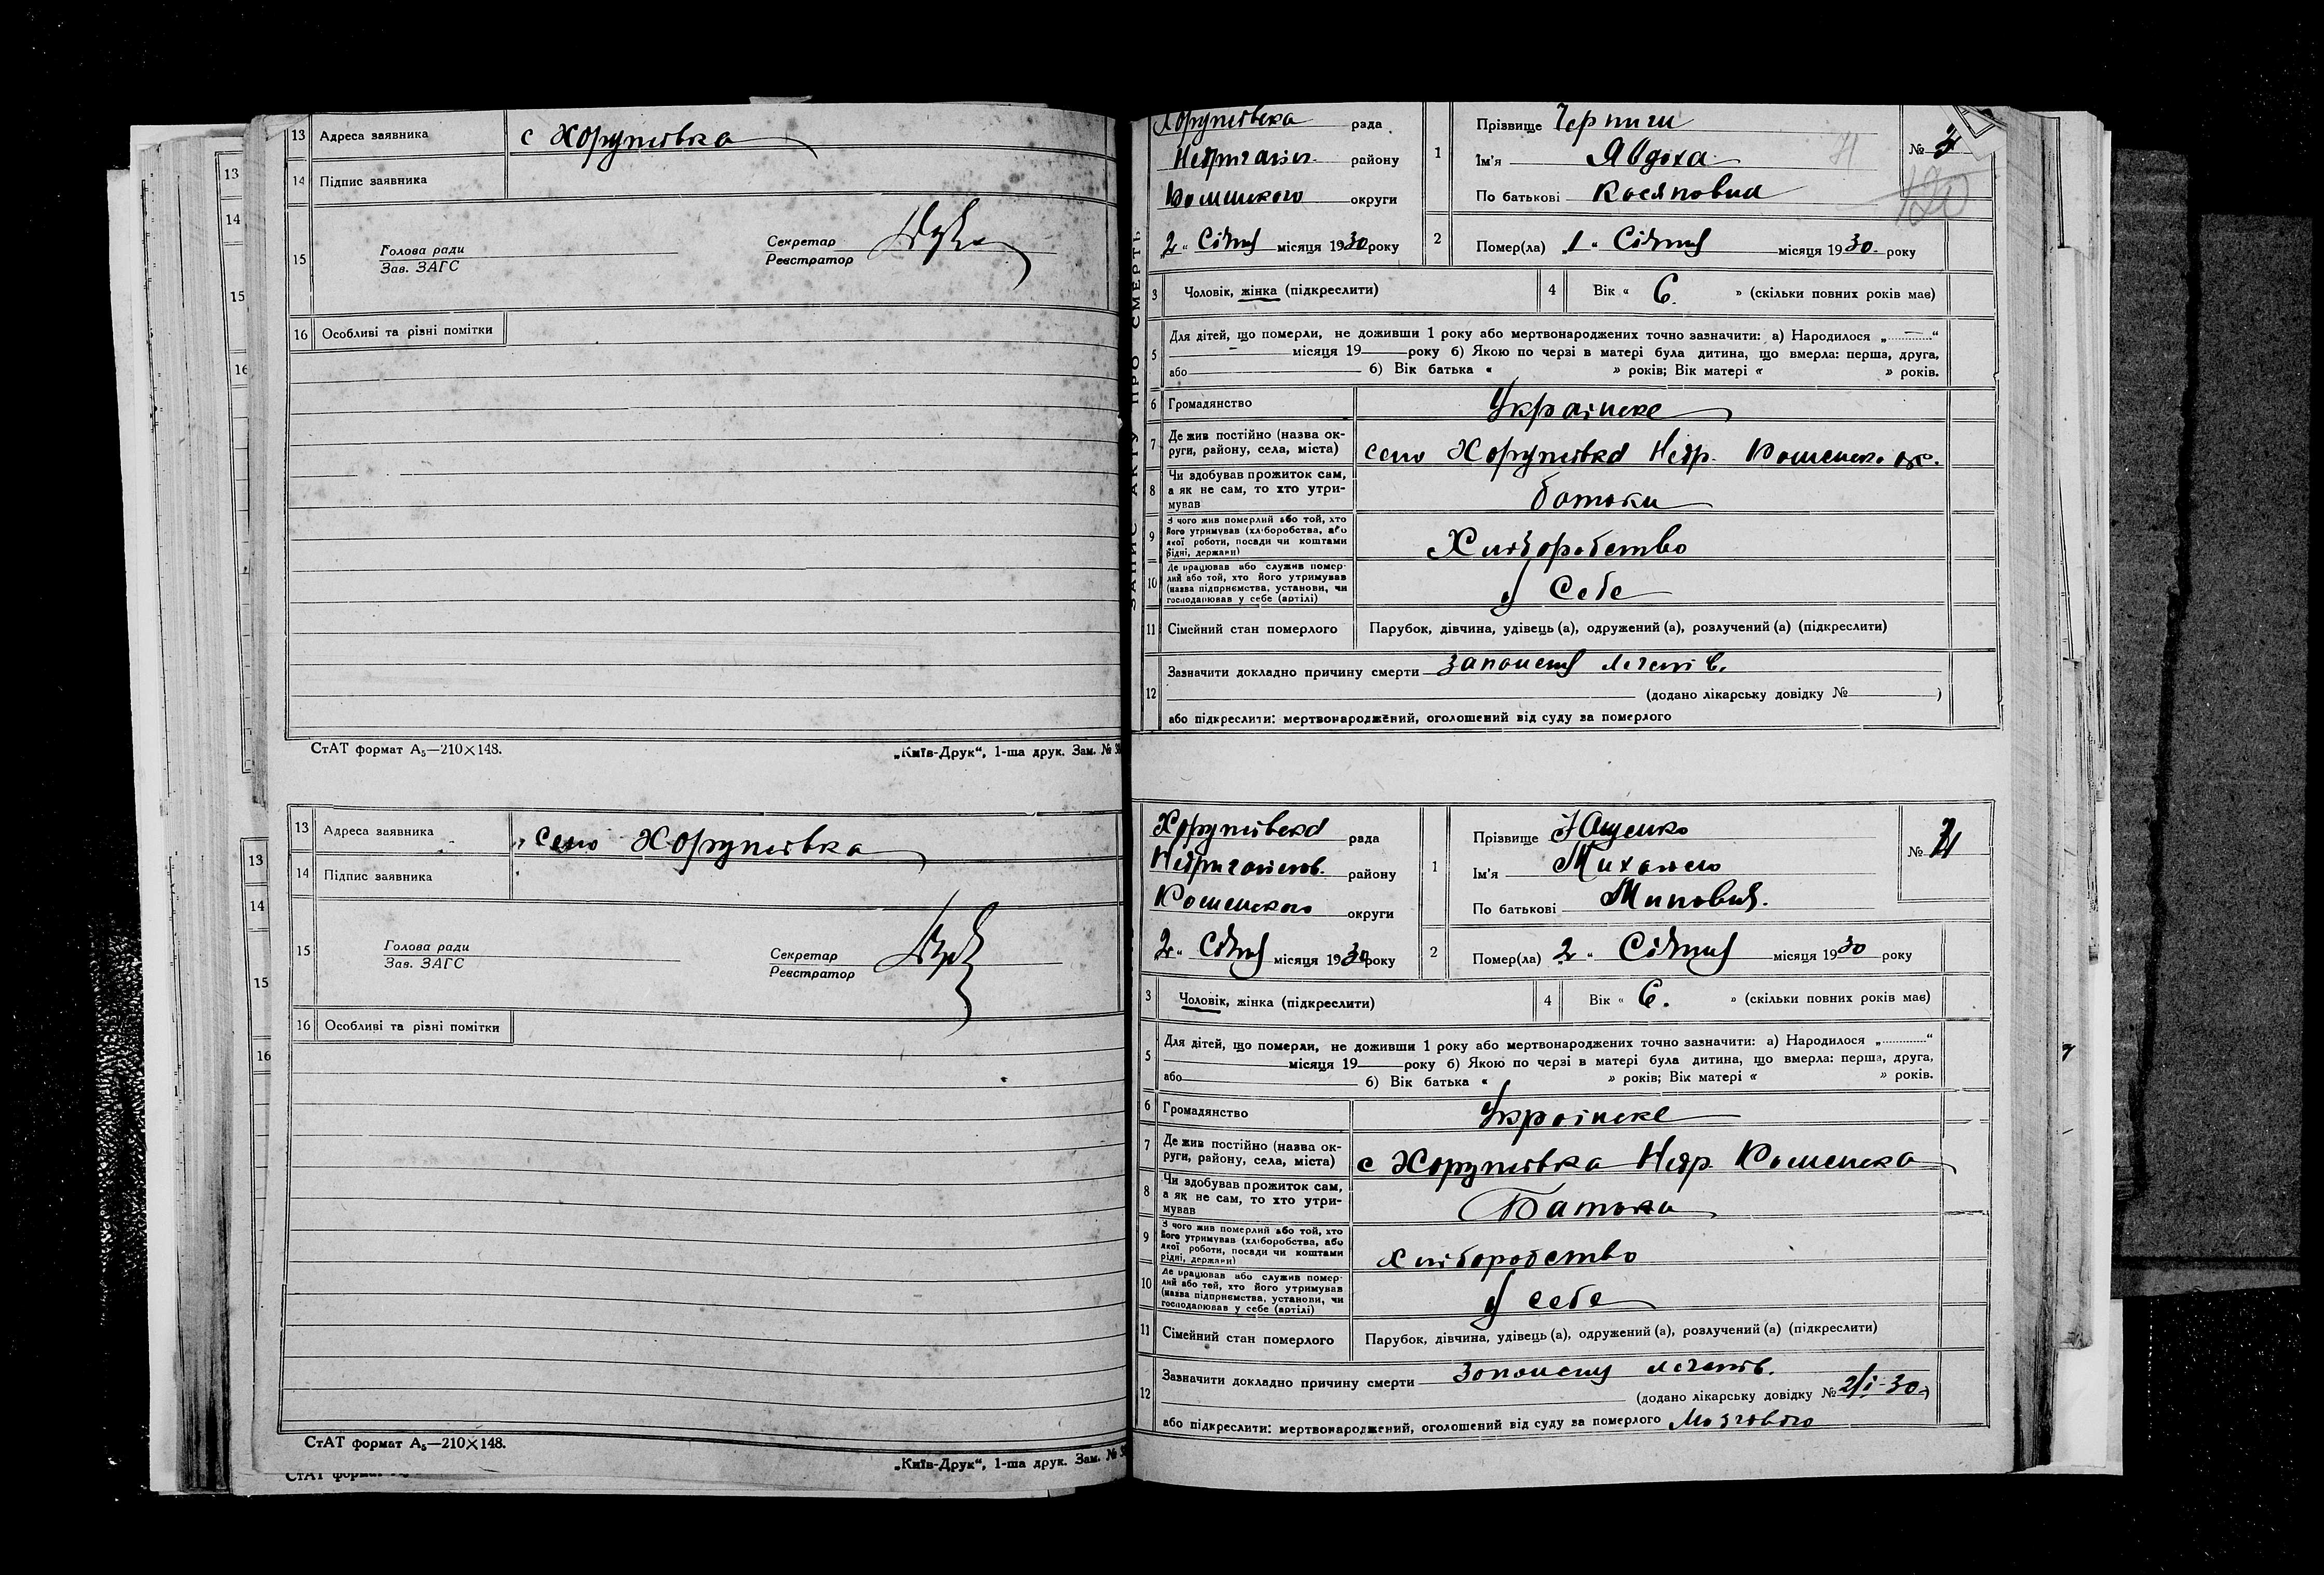 13 Адреса заявника с Хоружівка
14 Підпис заявника
15 Голова ради
Зав. ЗАГС
Секретар
Реєстратор
16 Особливі та різні помітки
СтАТ формат А5—210×148. „Київ-Друк“, 1-ша друк. Зам. №
13 Адреса заявника село Хоружівка
14 Підпис заявника
15 Голова ради
Зав. ЗАГС
Секретар
Реєстратор
16 Особливі та різні помітки
СтАТ формат А5—210×148.
„Київ-Друк“, 1-ша друк. Зам. №
ЗАПИС АКТУ ПРО СМЕРТЬ
Хоружівска рада
району
округи
2 „ Січня місяця 1930 року
1 Прізвище
Ім'я Явдоха
По батькові
№
120
2 Помер(ла) 1 „ Січня місяця 1930 року
3 Чоловік, жінка (підкреслити)
4 Вік « 6. » (скільки повних років має)
5 Для дітей, що померли, не доживши 1 року або мертвонароджених точно зазначити: а) Народилося „ “
місяця 19 року б) Якою по черзі в матері була дитина, що вмерла: перша, друга,
або б) Вік батька « » років; Вік матері « » років.
6 Громадянство Українске
7 Де жив постійно (назва ок-
руги, району, села, міста) село Хоружівка Недр.
8 Чи здобував прожиток сам,
а як не сам, то хто утри-
мував батьки
9 З чого жив померлий або той, хто
його утримував (хліборобства, або
якої роботи, посади чи коштами
рідні, держави) Хліборобство
10 Де працював або служив помер-
лий або той, хто його утримував
(назва підприємства, установи, чи
господарював у себе (артілі) у себе
11 Сімейний стан померлого Парубок, дівчина, удівець (а), одружений (а), розлучений (а) (підкреслити)
12 Зазначити докладно причину смерти заполеня легенів.
(додано лікарську довідку № )
або підкреслити: мертвонароджений, оголошений від суду за померлого
Хоружівска рада
району
округи
2 „ Січня місяця 1930 року
1 Прізвище Ющенко
Ім'я Михайло
По батькові
№
2 Помер(ла) 2 „ Січня місяця 1930 року
3 Чоловік, жінка (підкреслити)
4 Вік « 6. » (скільки повних років має)
5 Для дітей, що померли, не доживши 1 року або мертвонароджених точно зазначити: а) Народилося „ “
місяця 19 року б) Якою по черзі в матері була дитина, що вмерла: перша, друга,
або б) Вік батька « » років; Вік матері « » років.
6 Громадянство Українске
7 Де жив постійно (назва ок-
руги, району, села, міста) с Хоружівка Недр
8 Чи здобував прожиток сам,
а як не сам, то хто утри-
мував Батьки
9 З чого жив померлий або той, хто
його утримував (хліборобства, або
якої роботи, посади чи коштами
рідні, держави) хліборобство
10 Де працював або служив помер-
лий або той, хто його утримував
(назва підприємства, установи, чи
господарював у себе (артілі) у себе
11 Сімейний стан померлого Парубок, дівчина, удівець (а), одружений (а), розлучений (а) (підкреслити)
12 Зазначити докладно причину смерти заполеня легенів.
(додано лікарську довідку № 2/I-30)
або підкреслити: мертвонароджений, оголошений від суду за померлого